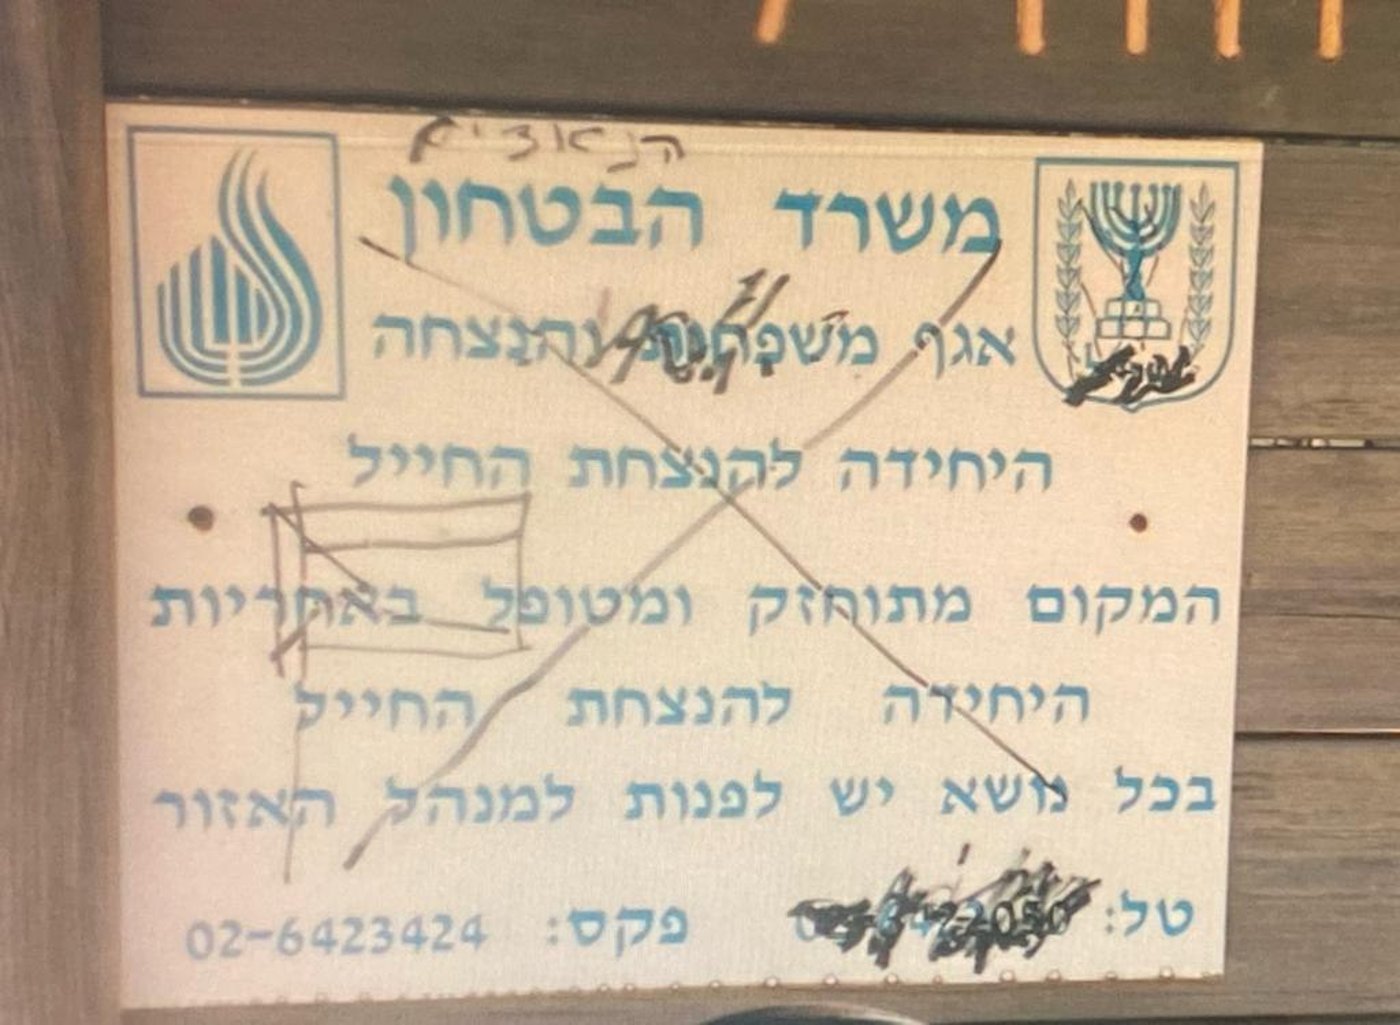 הנאצית
משרד הבטחון
אגף משפחות והנצחה
היחידה להנצחת החייל
המקום מתוחזק ומטופל באחריות
היחידה להנצחת החייל
בכל נושא יש לפנות למנהל האזור
טל: פקס: 02-6423424